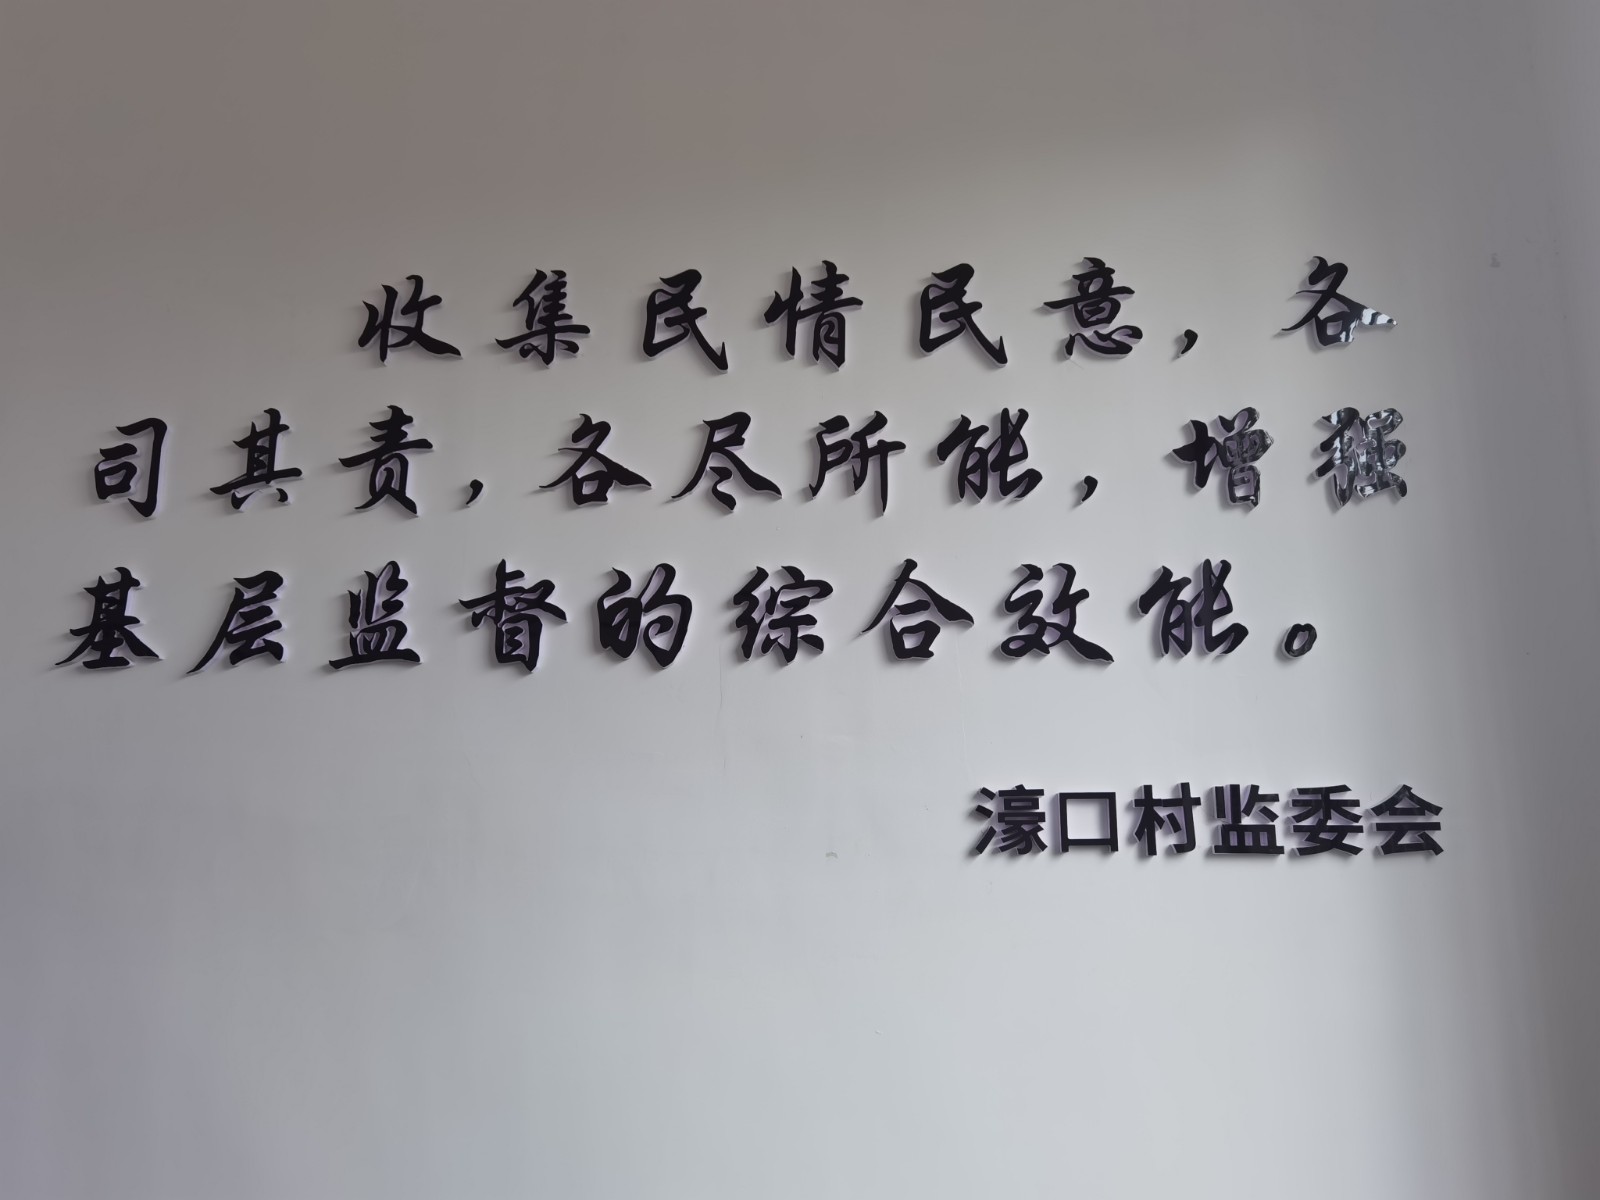 收集民情民意，各
司其责，各尽所能，增强
基层监督的综合效能。
濠口村监委会